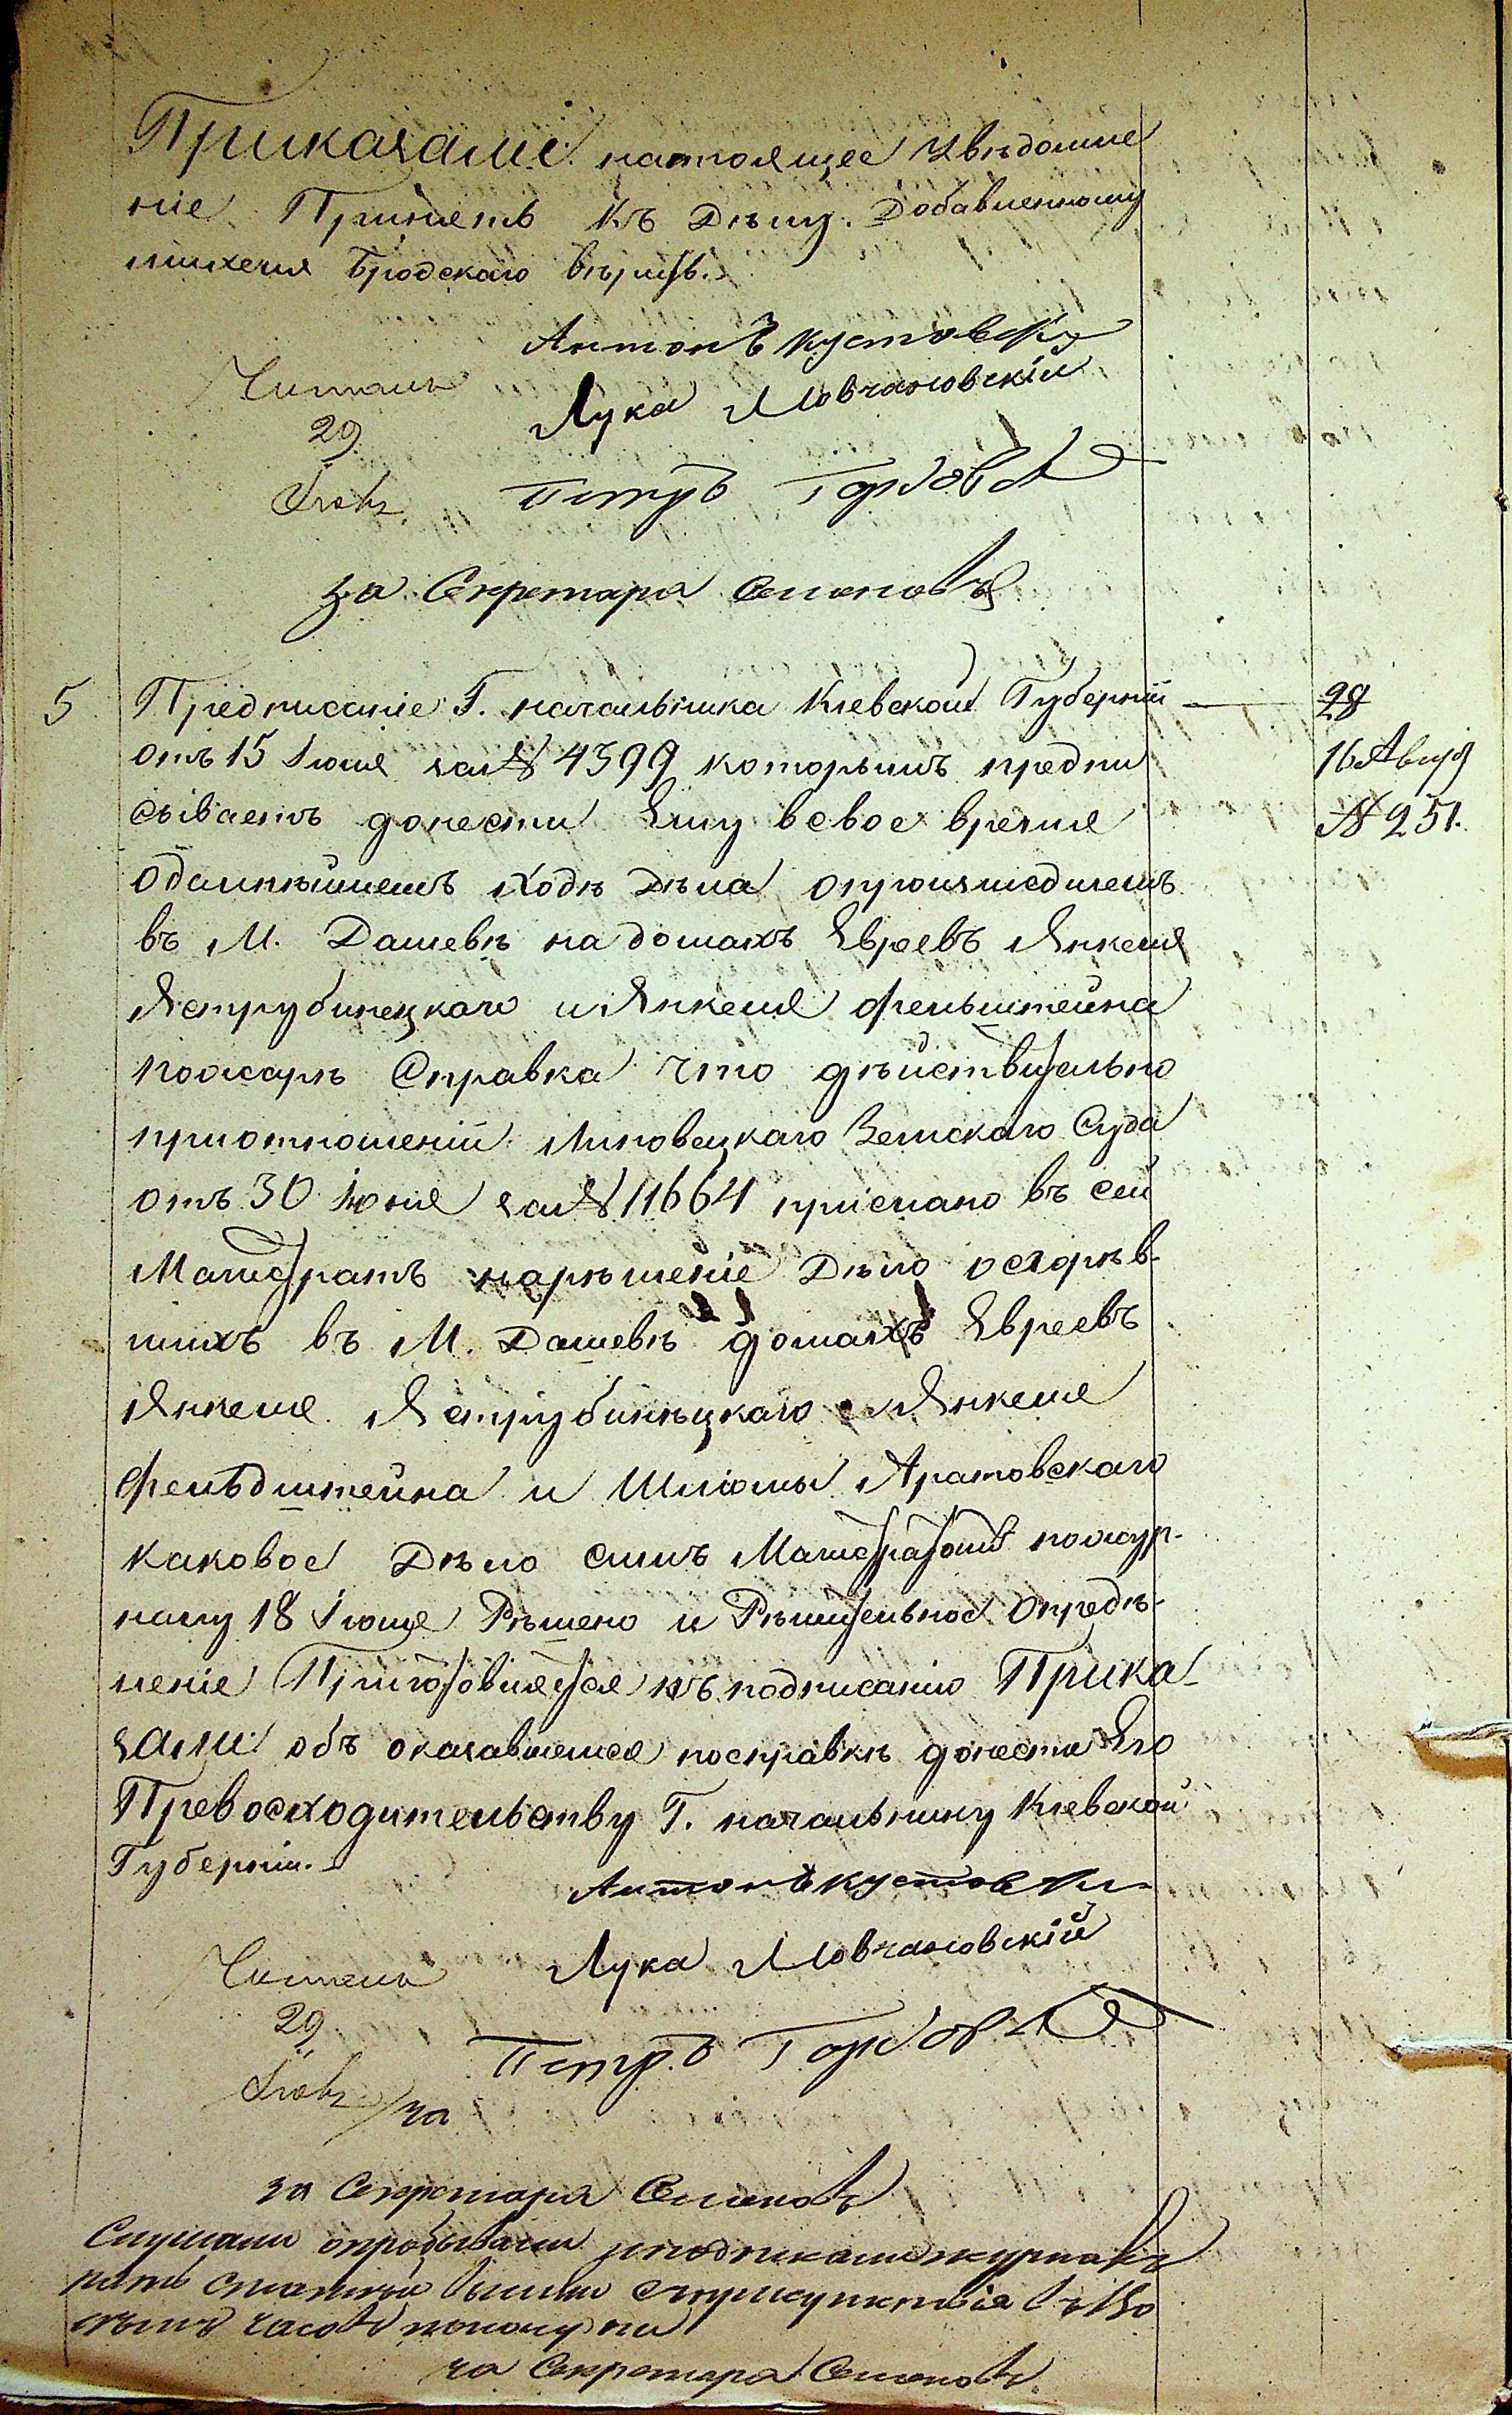 Приказали: настоящее Увѣдомле
ніе Принять къ Дѣлу. Добавленному
Бродскаго
Антонъ Кустовскі
Лука Мовчановскій
Читалъ
29
Петръ
За Секретаря Семеновъ
5 Предписаніе Г. начальника Кіевской Губерніи
28
отъ 15 Іюля за № 4399 которымъ предпи
16 Авгус
сываетъ донести Ему всвое время
№ 251.
одальнѣйшемъ ходѣ Дѣла опроизшедшемъ
въ М. Дашевѣ на домахъ Евреевъ Янкеля
Яструбинецкаго и Янкеля Фельштейна
пожарѣ Справка что дѣйствительно
приотношеніи Липовецкаго Земскаго Суда
отъ 30 Іюня за № 11664 прислано въ сей
Магистратъ нарѣшеніе Дѣло осгорѣв-
шихъ въ М. Дашевѣ домахъ Евреевъ
Янкеля Яструбинѣцкаго Янкеля
Фельдштейна и Шлюмы Аратовскаго
каковое Дѣло симъ Магистратомъ пожур-
налу 18 Іюля Рѣшено и Рѣшительное Опредѣ-
леніе Приготовляется къ подписанію Прика-
зали: объ оказавшемся посправкѣ донести Его
Превосходительству Г. начальнику Кіевской
Губерніи.
Антонъ Кустовскі
Лука Мовчановскій
Читалъ
29
Петръ
за
за Секретаря Семеновъ
Слушали иподписали журналъ
часовъ пополудни
за Секретаря Семеновъ